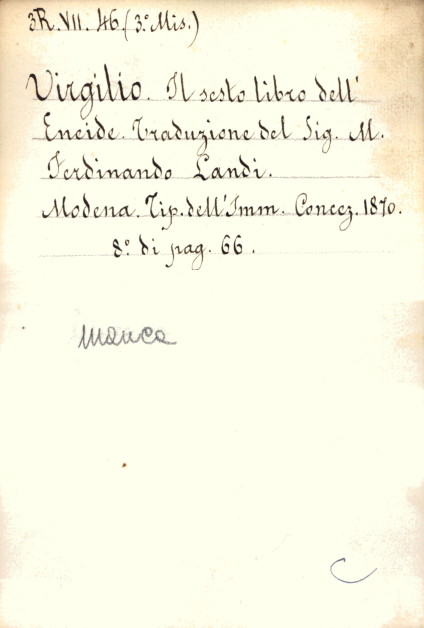 3R.VII.46.(3.º Mis.)
Virgilio. Il sesto libro dell'
Eneide. Traduzione del Sig. M.
Ferdinando Landi.
Modena. Tip. dell'Imm. Concez. 1870.
8.º di pag. 66.
manca